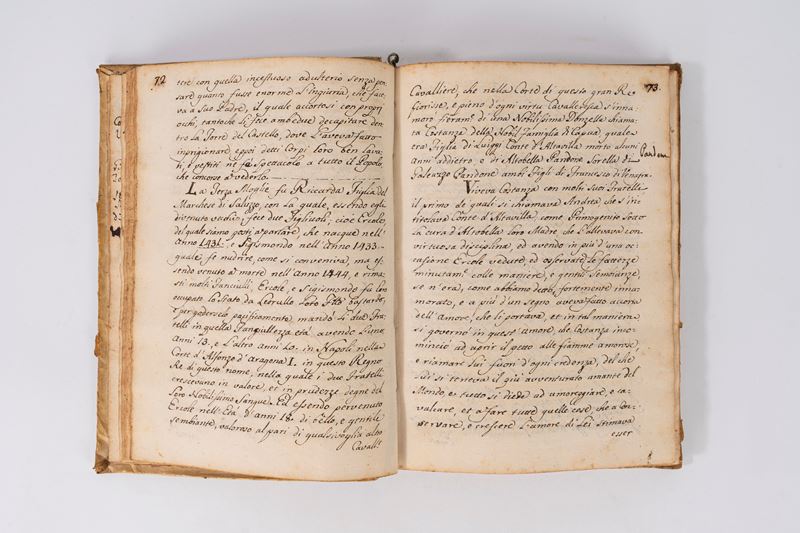 72
tere con quella incestuoso adulterio senza pen-
sare quanto fusse enorme l'ingiuria, che face-
va a suo Padre, il quale accortosi con proprj
occhi, tantoche li fece amodue decapitare den-
tro la Torre del Castello, dove l'aveva fatto
inprigionare, e poi detti Corpi loro ben lava-
ti, e vestiti ne fà spettacolo a tutto il Popolo
che concorse a vederlo.
La Terza Moglie fu Riccarda Figlia del
Marchese di Saluzzo, con la quale, essendo egli
divenuto vechio, fece due Figliuoli; cioè Ercole,
del quale siamo posti a parlare che nacque nell'
Anno 1431. e Sigismondo nell'Anno 1433.
quale fe nudrire, come si conveniva, ma es-
sendo venuto a morte nell'Anno 1444. e rima-
sti molti Fanciulli, Ercole, e Sigismondo fu loro
occupato lo stato da Leonello loro Fratello bastardo,
e per godersi pacificamente mandò li due Fra-
telli in quella Fanciullezza età, avendo l'uno
Anni 13. e l'altro anni 10. in Napoli nella
Corte d'Alfonzo d'Aragona I. in questo Regno
Re di questo nome, nella quale i due Fratelli
crescevano in valore, et in prudezze degne del
loro Nobilissimo Sangue. Ed essendo pervenuto
Ercole nell'età d'anni 18. di bello, e gentile
sembiante, valoroso al pari di qualsivoglia altro
Cavall:e
73.
Cavalliere, che nella Corte di questo gran Re
fiorisse, e pieno d'ogni virtù Cavalleresca s'inna-
morò fieram:te di una Nobilissima Donzella chiama-
ta Costanza della Nobil Famiglia di Capua quale
era Figlia di Luiggi Conte d'Altavilla morto alcuni
anni addietro, e di Altobella Pandone sorella di
Galeazzo Pandone ambi Figli di Francesco di Venafra.
Pandon
Viveva Costanza con molti suoi Fratelli
il primo de quali si chiamava Andrea che s'in-
titolava Conte d'Altavilla, come Primogenito sotto
la cura d'Altobella loro Madre, che l'allevava con
virtuosa disciplina, ed avendo in più d'una oc-
casione Ercole vedute, ed osservate le fattezze
minutam:te colle maniere, e gentili sembianze,
se n'era, come abbiamo detto, fortemente inna-
morato, e a più d'un segno aveva fatto accorta
dell'Amore, che li portava, et in tal maniera
si governò in quest'amore, che Costanza inco-
minciò ad aprir il petto alle fiamme amorose,
e riamare lui fuori d'ogni credenza, del che
si teneva il più avventurato amante del
Mondo, et tutto si diede ad amoreggiare, e ca-
valcare, et a fare tutte quelle cose, che a con-
servare, e crescere l'amore di lei stimava
esser